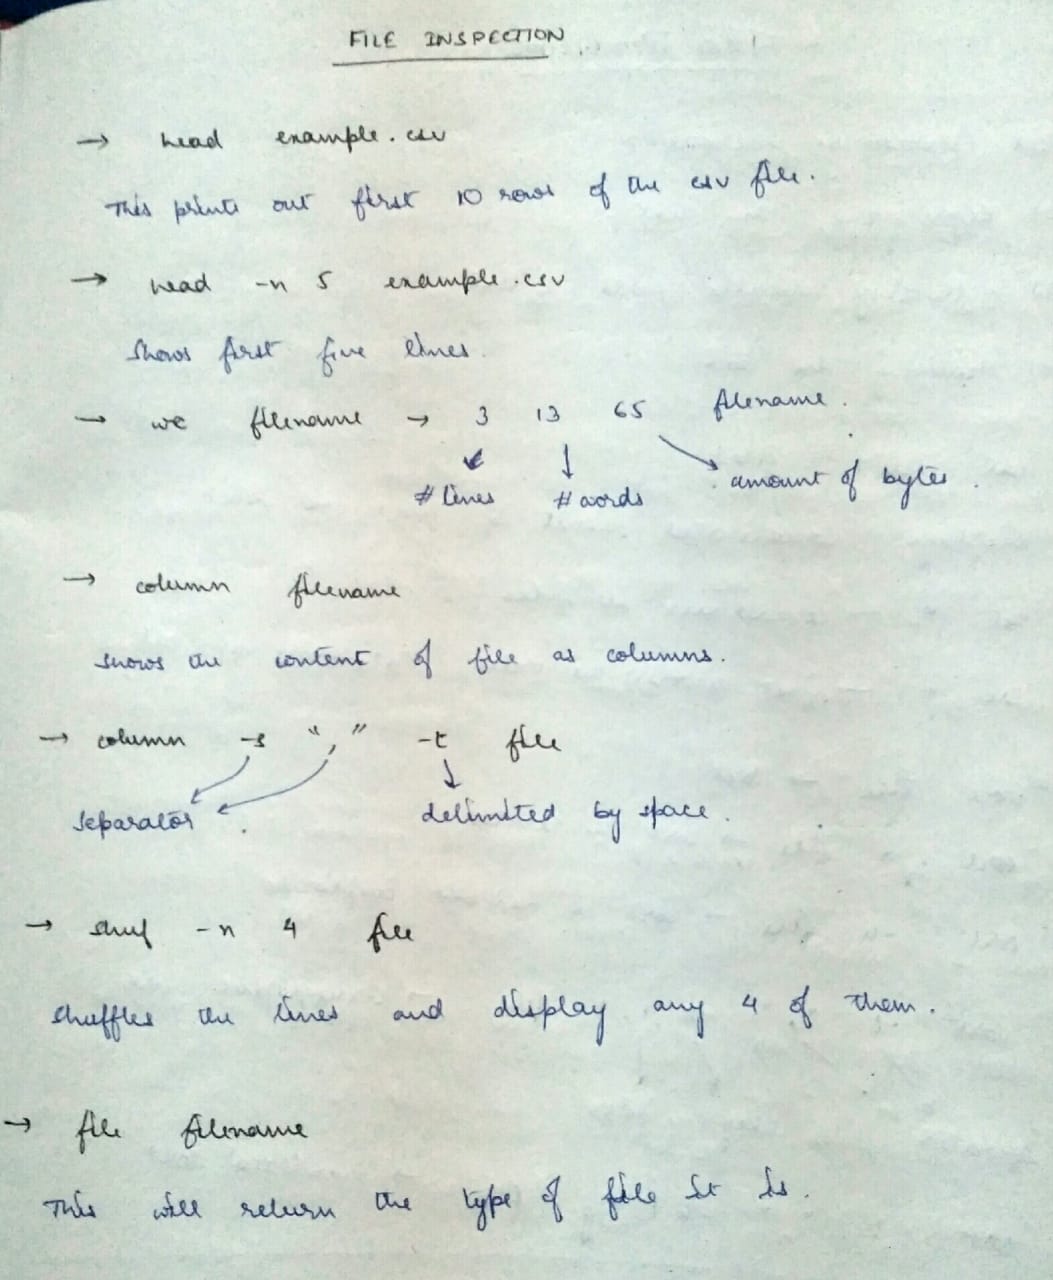 FILE INSPECTION
→ head example.csv
This prints out first 10 rows of the csv file.
→ head -n 5 example.csv
Shows first five lines.
→ wc filename → 3 13 65 filename.
# lines # words amount of bytes.
→ column filename
shows the content of file as columns.
→ column -s "," -t file
separator. delimited by space.
→ shuf -n 4 file
shuffles the lines and display any 4 of them.
→ file filename
This will return the type of file it is.